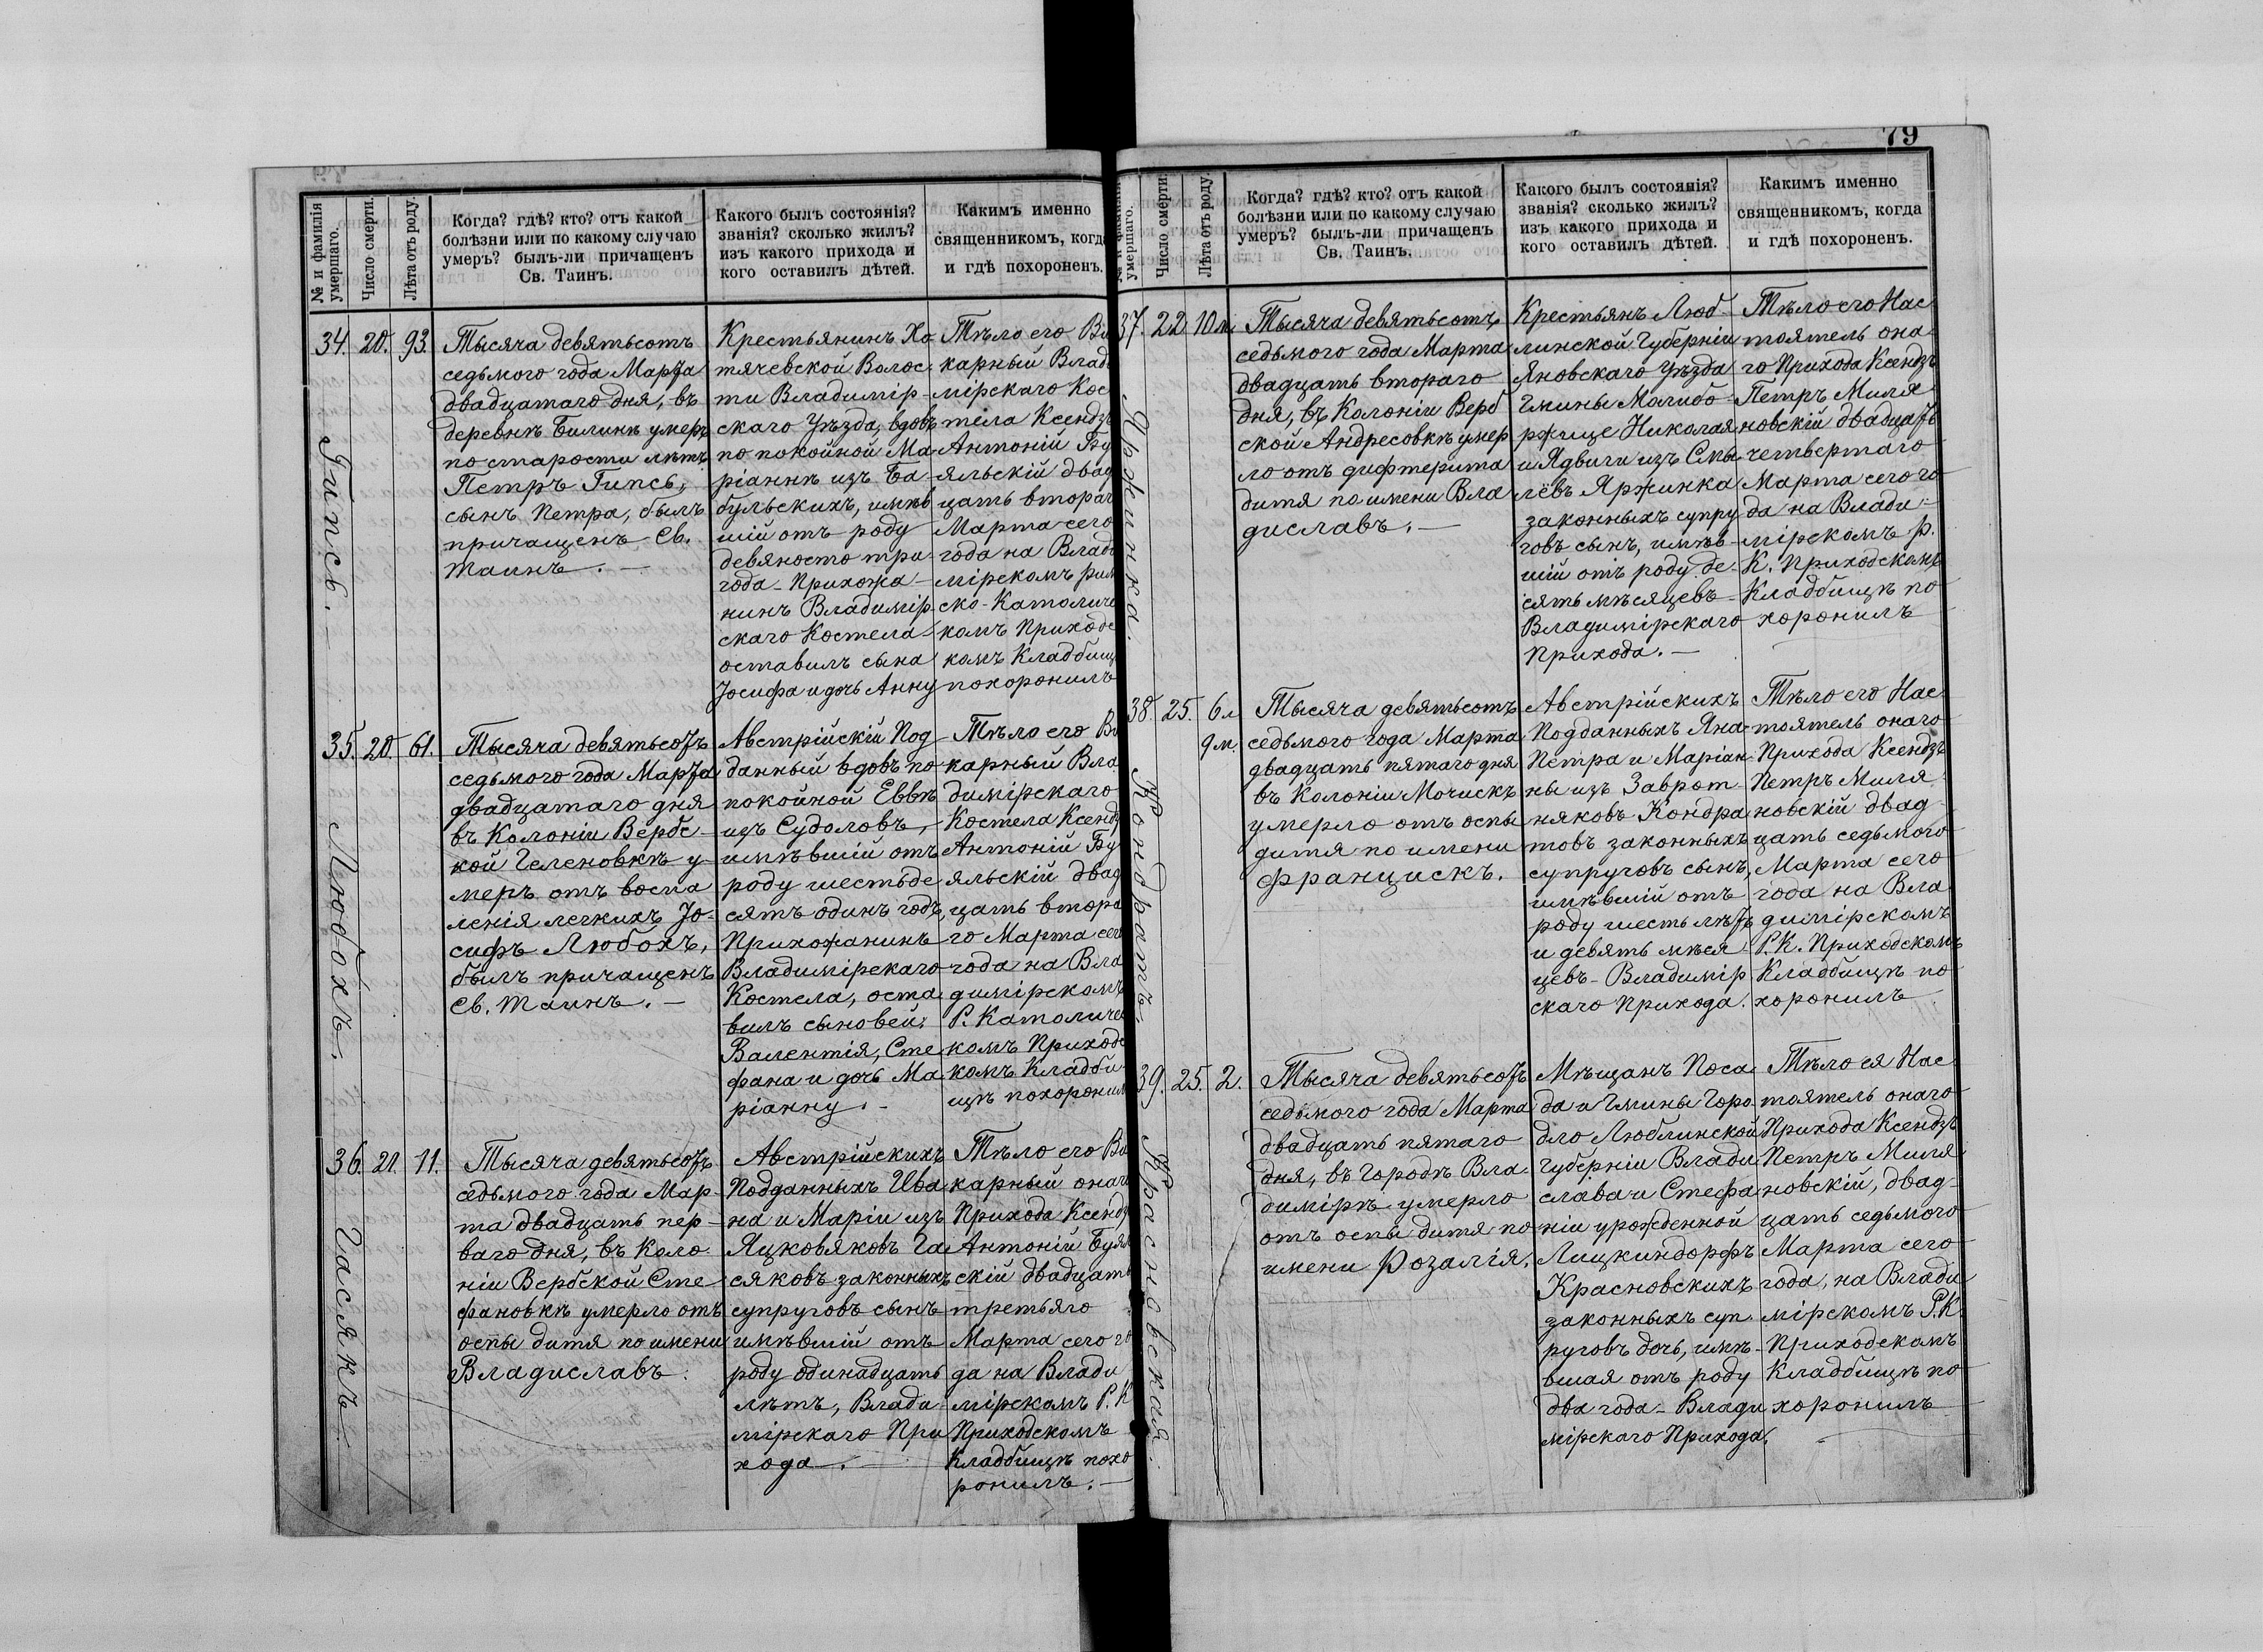 79
№ и фамилія
умершаго.
Число смерти.
Лѣта отъ роду.
Когда? гдѣ? кто? отъ какой
болѣзни или по какому случаю
умеръ? былъ-ли причащенъ
Св. Таинъ.
Какого былъ состоянія?
званія? сколько жилъ?
изъ какого прихода и
кого оставилъ дѣтей.
Какимъ именно
священникомъ, когда
и гдѣ похороненъ.
34. 20. 93.
Гипсъ.
Тысяча девятьсотъ
седьмого года Марта
двадцатаго дня, въ
деревнѣ Билинѣ умеръ
по старости лѣтъ
Петръ Гипсъ,
сынъ Петра, былъ
причащенъ Св.
Таинъ. —
Крестьянинъ Хо
тячевской Волос
ти Владимір-
скаго Уѣзда, вдовъ
по покойной Ма
ріаннѣ изъ Ба
бульскихъ, имѣв
шій отъ роду
девяносто три
года - Прихожа-
нинъ Владимір-
скаго Костела
оставилъ сына
Іосифа и дочь Анну
Тѣло его Ви
карный Влади
мірскаго Кос
тела Ксендзъ
Антоній Бу
яльскій двад
цать втораг
Марта сего
года на Влади
мірскомъ рим
ско-Католиче
комъ Приходс
комъ Кладбищ
похоронилъ
35. 20. 61.
Любохъ.
Тысяча девятьсотъ
седьмого года Марта
двадцатаго дня
въ Колоніи Вербс-
кой Геленовкѣ у-
меръ отъ воспа
ленія легкихъ Іо-
сифъ Любохъ,
былъ причащенъ
Св. Таинъ. —
Австрійскій Под
данный вдовъ по
покойной Еввѣ
изъ Судоловъ,
имѣвшій отъ
роду шестьде
сятъ одинъ годъ,
Прихожанинъ
Владимірскаго
Костела, оста
вилъ сыновей:
Валентія, Сте
фана и дочь Ма
ріанну. -
Тѣло его Ви
карный Вла
димірскаго
Костела Ксендз
Антоній Бу
яльскій двад
цать втора
го Марта сего
года на Вла
димірскомъ
Р. Католичес
комъ Приходс
комъ Кладби
щѣ похоронил
36. 21. 11.
Гасякъ
Тысяча девятьсотъ
седьмого года Мар-
та двадцать пер-
ваго дня, въ Коло-
ніи Вербской Сте
фановкѣ умерло отъ
оспы дитя по имени
Владиславъ.
Австрійскихъ
Подданныхъ Ива
на и Маріи изъ
Яцковяковъ Га
сяковъ законныхъ
супруговъ сынъ
имѣвшій отъ
роду одинадцать
лѣтъ, Влади
мірскаго При
хода. —
Тѣло его Ви
карный онаго
Прихода Ксендз
Антоній Буял
скій двадцать
третьяго
Марта сего го
да на Влади
мірскомъ Р. К
Приходскомъ
Кладбищѣ похо
ронилъ. —
№ и фамилія
умершаго.
Число смерти.
Лѣта отъ роду.
Когда? гдѣ? кто? отъ какой
болѣзни или по какому случаю
умеръ? былъ-ли причащенъ
Св. Таинъ.
Какого былъ состоянія?
званія? сколько жилъ?
изъ какого прихода и
кого оставилъ дѣтей.
Какимъ именно
священникомъ, когда
и гдѣ похороненъ.
37. 22. 10 м.
Яржинка.
Тысяча девятьсотъ
седьмого года Марта
двадцать втораго
дня, въ Колоніи Верб
ской Андресовкѣ умер
ло отъ дифтерита
дитя по имени Вла
диславъ. —
Крестьянъ Люб-
линской Губерніи
Яновскаго Уѣзда
Гмины Молибо
ржице Николая
и Ядвиги изъ Смы
лёвъ Яржинка
законныхъ супру
говъ сынъ, имѣв-
шій отъ роду де-
сять мѣсяцевъ
Владимірскаго
Прихода. —
Тѣло его Нас
тоятель она
го Прихода Ксендзъ
Петръ Миля
новскій двадцать
четвертаго
Марта сего го
да на Влади-
мірскомъ Р.
К. Приходскомъ
Кладбищѣ по
хоронилъ
38. 25. 6 л.
9 м.
Кондратъ.
Тысяча девятьсотъ
седьмого года Марта
двадцать пятаго дня
въ Колоніи Мочискѣ
умерло отъ оспы
дитя по имени
Францискъ.
Австрійскихъ
Подданныхъ Яна
Петра и Маріан
ны изъ Заврот-
няковъ Кондра
товъ законныхъ
супруговъ сынъ,
имѣвшій отъ
роду шесть лѣтъ
и девять мѣся
цевъ - Владимір
скаго Прихода.
Тѣло его Нас
тоятель онаго
Прихода Ксендзъ
Петръ Миля
новскій двад-
цать седьмого
Марта сего
года на Вла
димірскомъ
Р. К. Приходскомъ
Кладбищѣ по
хоронилъ
39. 25. 2.
Красновская.
Тысяча девятьсотъ
седьмого года Марта
двадцать пятаго
дня, въ Городѣ Вла
димірѣ умерло
отъ оспы дитя по
имени Розалія.
Мѣщанъ Поса
да и Гмины Горо
дло Люблинской
Губерніи Влади
слава и Стефа
ніи урожденной
Лицкиндорфъ
Красновскихъ
законныхъ суп
руговъ дочь, имѣ-
вшая отъ роду
два года - Влади
мірскаго Прихода.
Тѣло ея Нас
тоятель онаго
Прихода Ксендзъ
Петръ Миля
новскій, двад-
цать седьмого
Марта сего
года, на Влади
мірскомъ Р. К.
Приходскомъ
Кладбищѣ по
хоронилъ